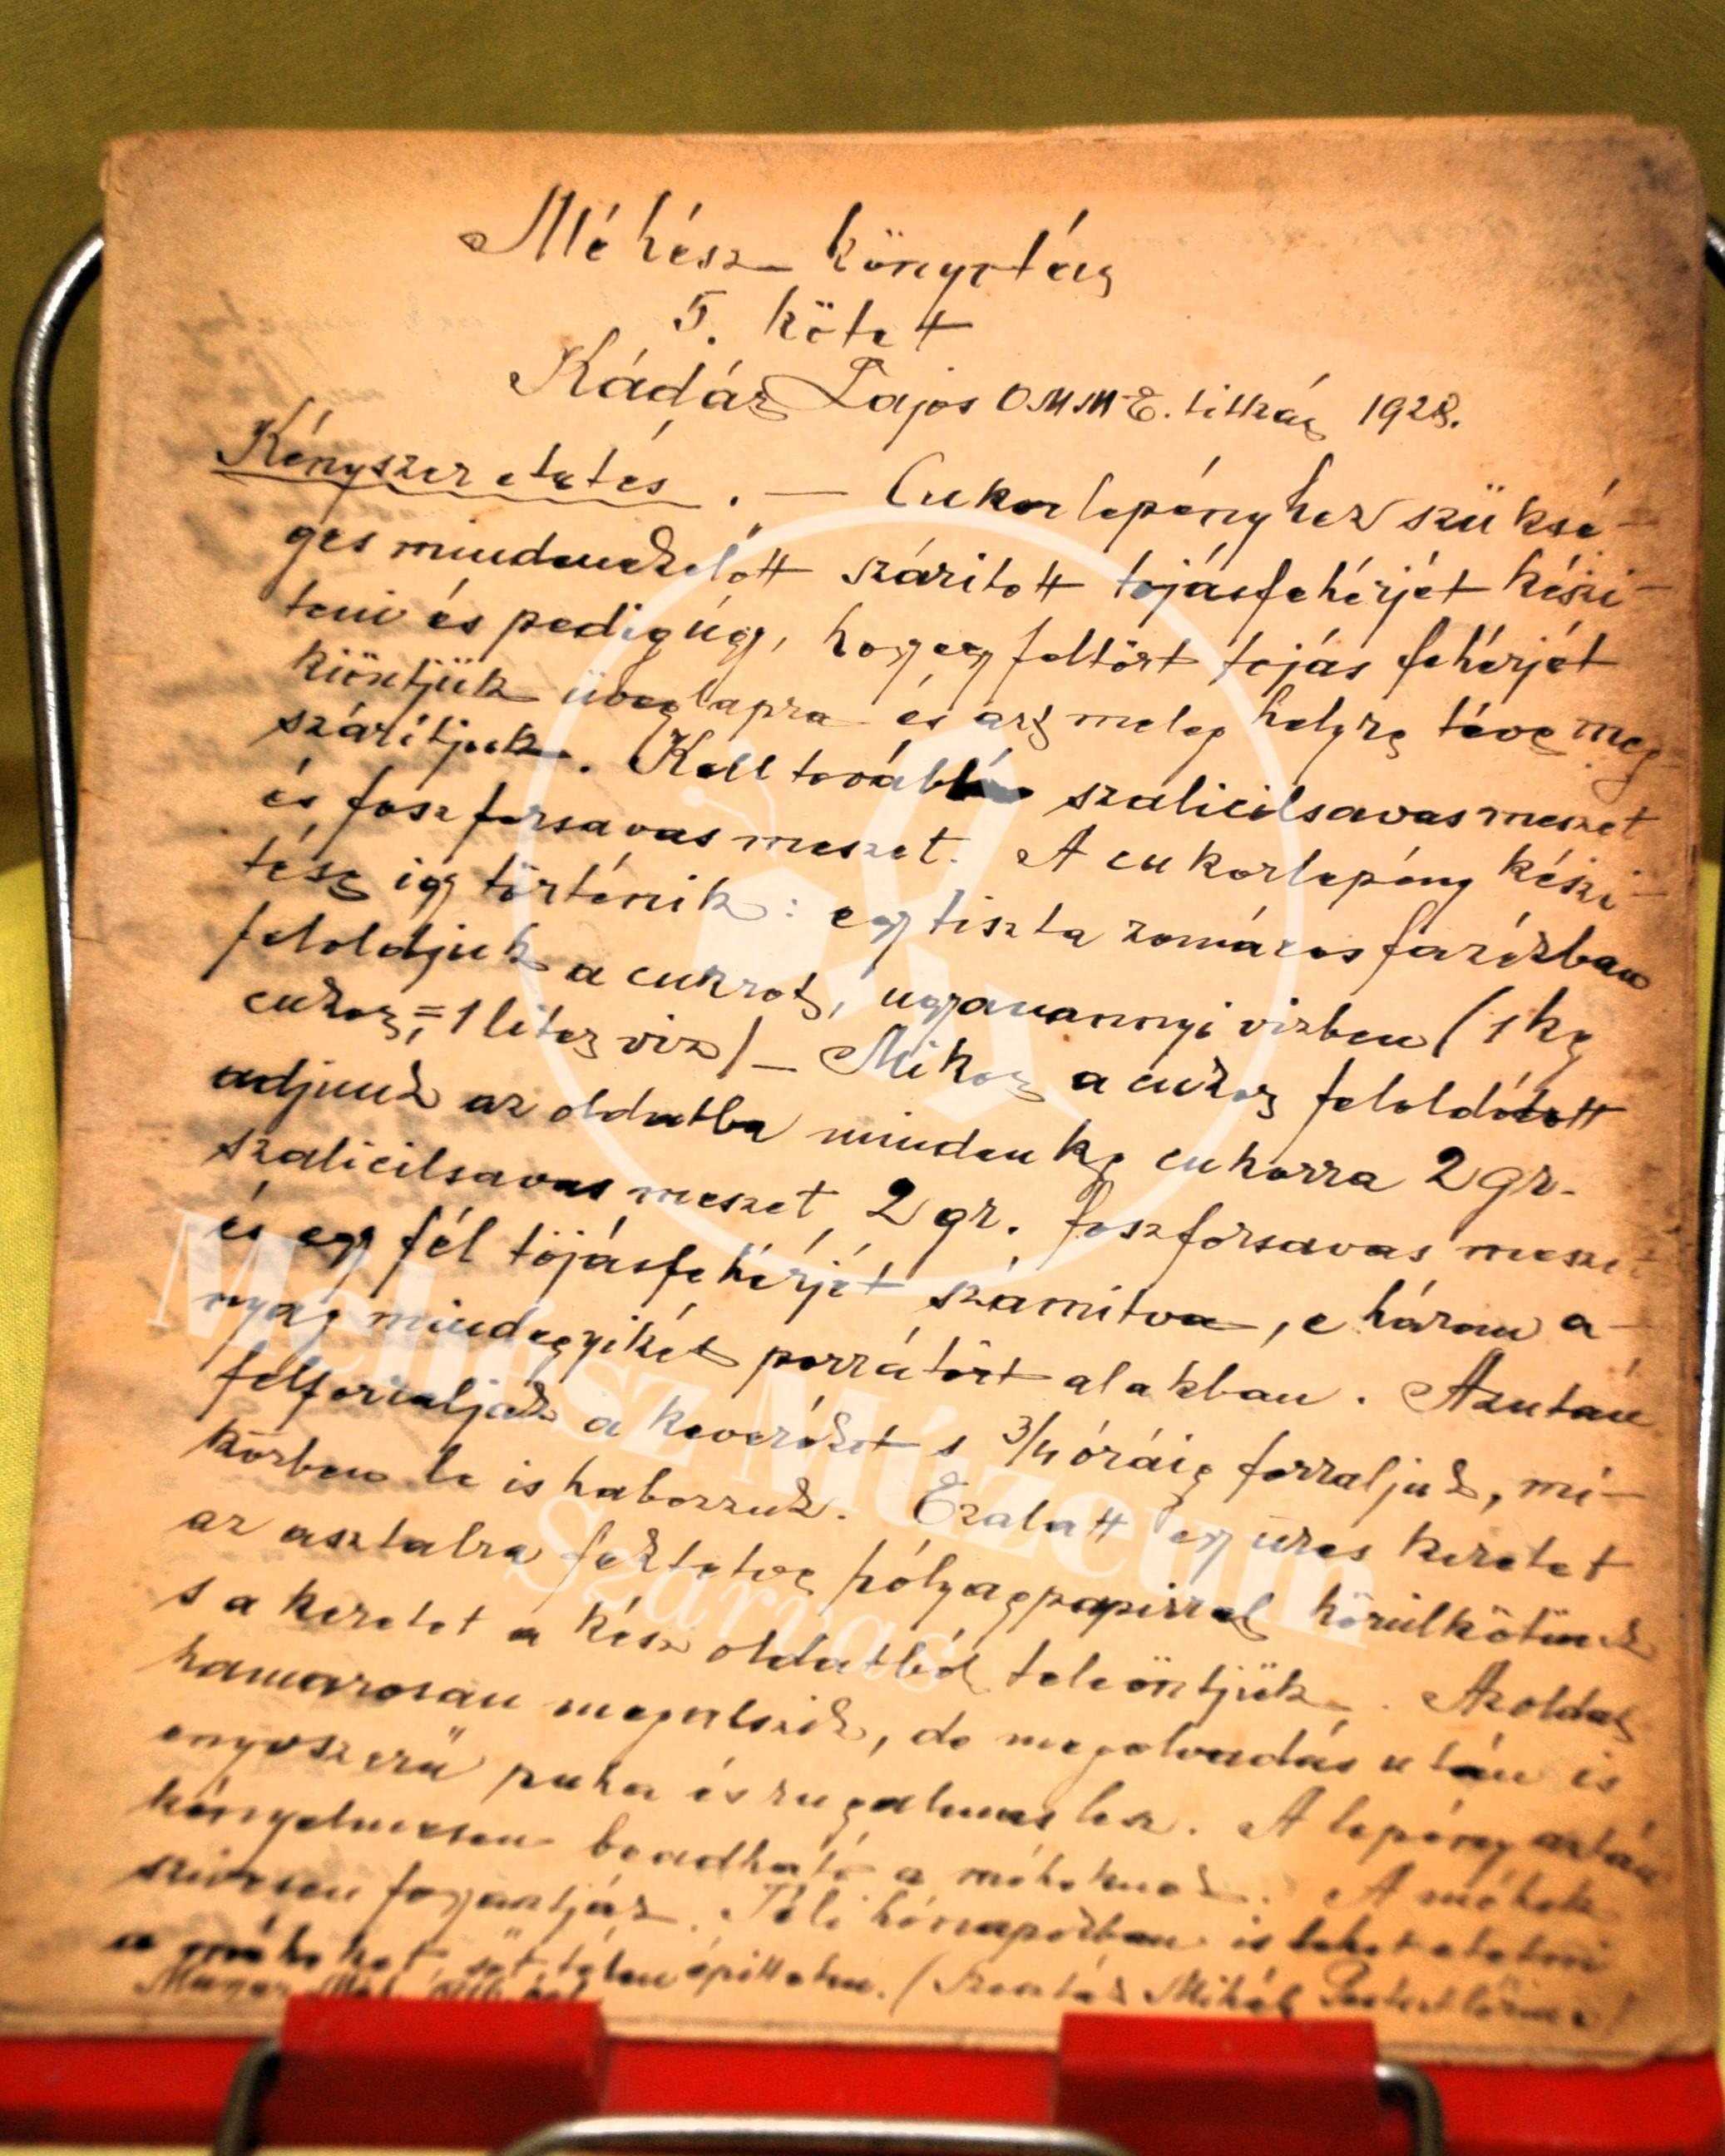 Méhész könyvtár
5. kötet
Kádár Lajos OMME. titkár 1928.
Kényszer etetés. — Cukorlepényhez szüksé-
ges mindenekelőtt szárított tojásfehérjét készi-
teni és pedig úgy, hogy egy feltört tojás fehérjét
kiöntjük üveglapra és azt meleg helyre téve meg-
szárítjuk. Kell továbbá szalicilsavas meszet
és foszforsavas meszet. A cukorlepény készi-
tése igy történik: egy tiszta zománcos fazékban
feloldjuk a cukrot, ugyanannyi vizben (1 kg
cukor = 1 liter viz) — Mikor a cukor feloldódott
adjunk az oldatba minden kg cukorra 2 gr.
szalicilsavas meszet, 2 gr. foszforsavas meszet
és egy fél tojásfehérjét számitva, e három a-
nyag mindegyikét porrátört alakban. Azután
felforraljuk a keveréket s 3/4 óráig forraljuk, mi-
közben le is habozzuk. Ezalatt egy üres keretet
az asztalra fektetve hólyagpapirral körülkötünk
s a keretet a kész oldatból teleöntjük. Az oldat
hamarosan megalszik, de megolvadás után is
enyvszerü puha és rugalmas lesz. A lepény aztán
kényelmesen beadható a méheknek. A méhek
szivesen fogyasztják. Téli hónapokban is lehet etetni
a méheket, sőt télen épittetni. (Szontág Mihály
Méhész Múzeum
Szarvas